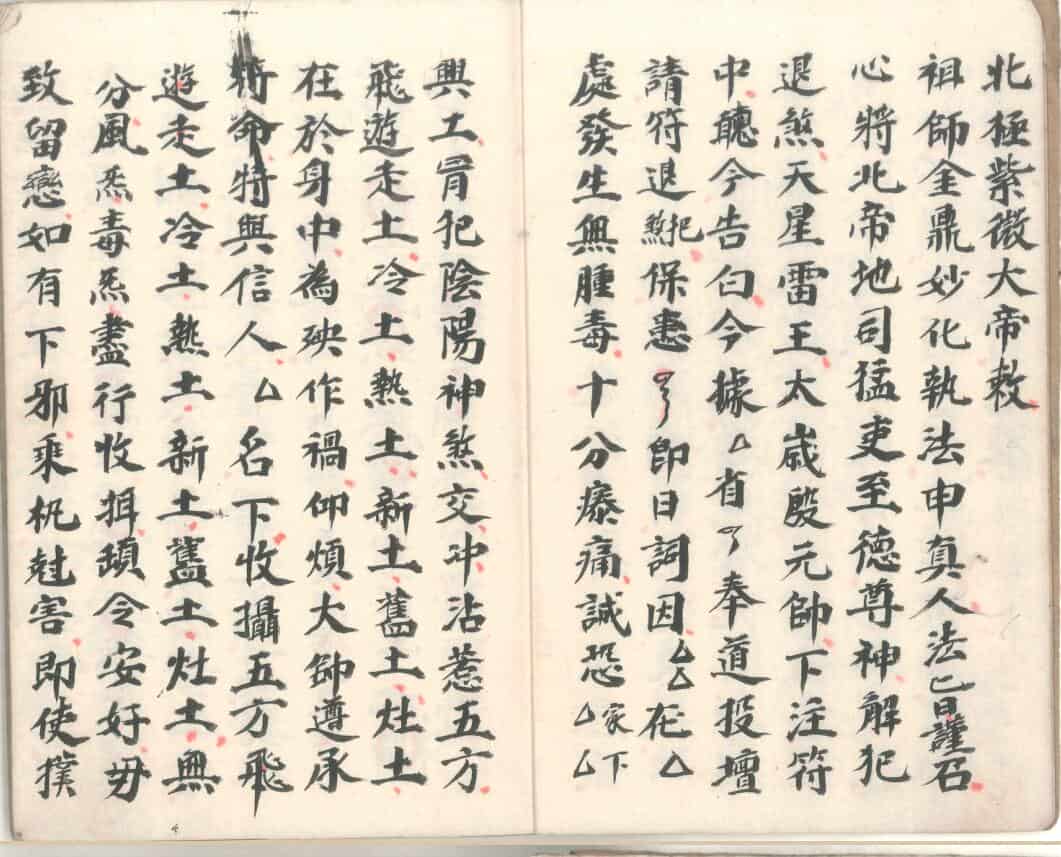 北極紫微大帝敕
祖師金鼎妙化執法申真人法㠯謹召
心將北帝地司猛吏至德尊神解犯
退煞天星雷王太歲殷元帥下注符
中聽今告曰今據厶省 奉道投壇
請符退煞 把保患 即日詞因厶厶在厶
處發生無腫毒十分療痛誠恐厶家下厶
興工冐犯陰陽神煞交冲沾惹五方
飛遊走土冷土熱土新土舊土灶土
在於身中為殃作禍仰煩大帥遵承
符命特與信人厶名下收攝五方飛
遊走土冷土熱土新土舊土灶土無
分風炁毒炁盡行收 令安好毋
致留戀如有下邪乘机尅害即使撲